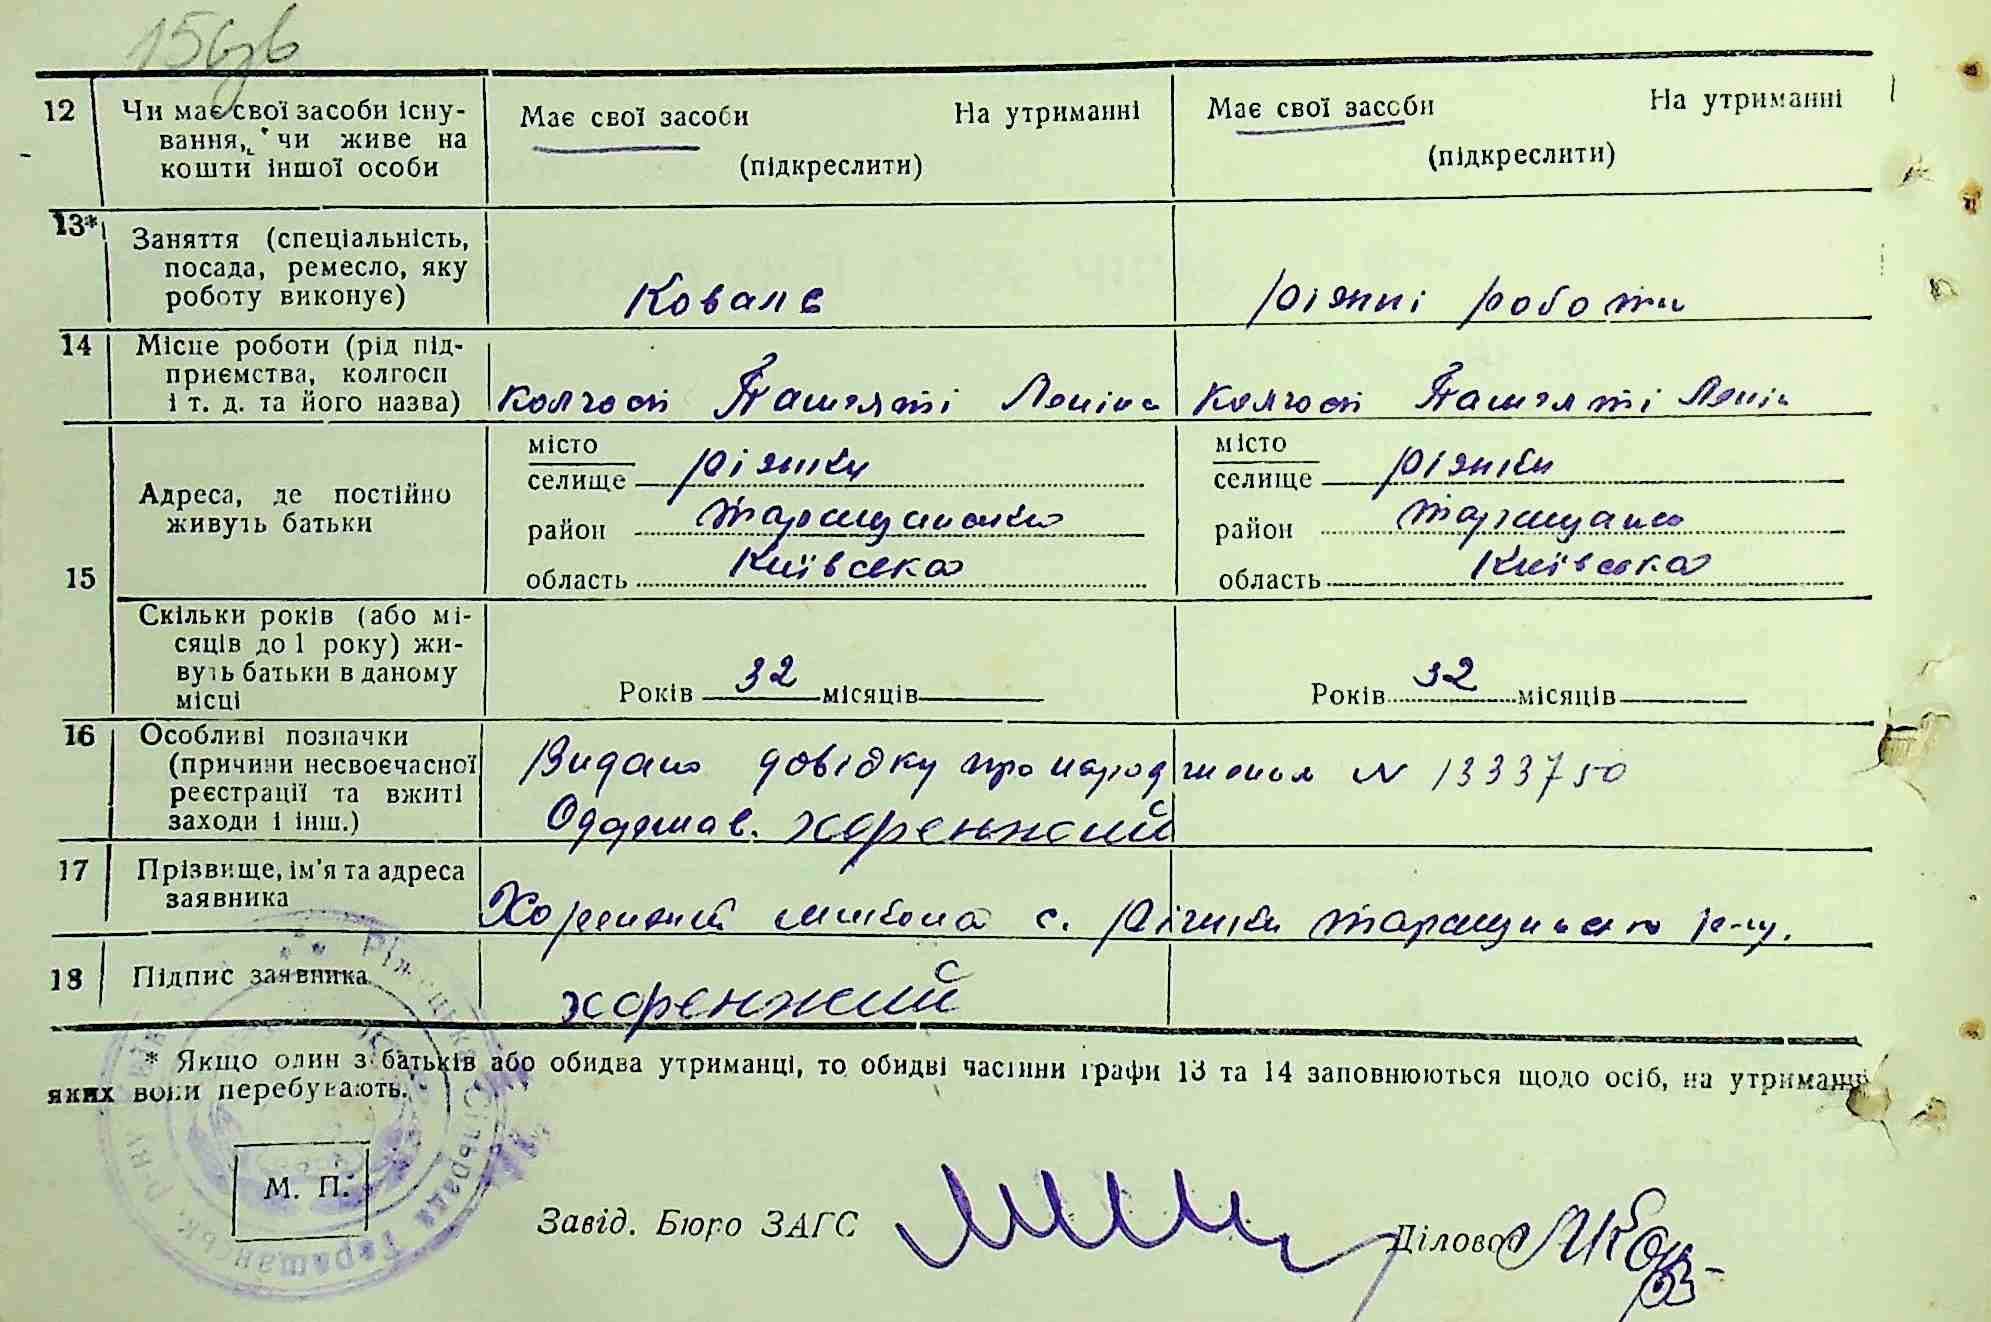 156зв
12 Чи має свої засоби існу-
вання, чи живе на
кошти іншої особи
Має свої засоби На утриманні
(підкреслити)
Має свої засоби На утриманні
(підкреслити)
13* Заняття (спеціальність,
посада, ремесло, яку
роботу виконує)
Коваль
різнні роботи
14 Місце роботи (рід під-
приємства, колгосп
і т. д. та його назва)
Колгосп Пам'яті Леніна
Колгосп Пам'яті Леніна
15 Адреса, де постійно
живуть батьки
місто
селище Ріжки
район Таращанський
область Київська
місто
селище Ріжки
район
область Київська
Скільки років (або мі-
сяців до 1 року) жи-
вуть батьки в даному
місці
Років 32 місяців
Років 32 місяців
16 Особливі позначки
(причини несвоєчасної
реєстрації та вжиті
заходи і інш.)
Видано довідку про народження № 1333750
Одержав. Хоренжий
17 Прізвище, ім'я та адреса
заявника
Хоренжий Микола с. Ріжки р-ну.
18 Підпис заявника
Хоренжий
* Якщо один з батьків або обидва утриманці, то обидві частини графи 13 та 14 заповнюються щодо осіб, на утриманні
яких вони перебувають.
М. П.
Завід. Бюро ЗАГС
Діловод